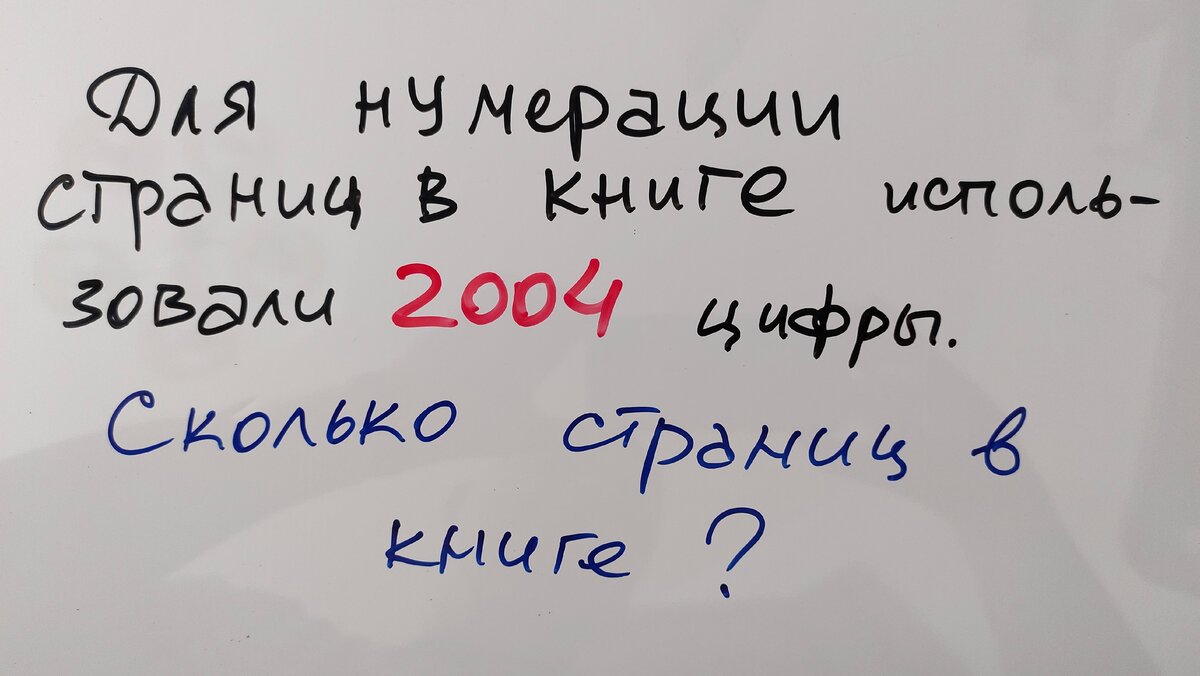 Для нумерации
страниц в книге исполь-
зовали 2004 цифры.
Сколько страниц в
книге ?